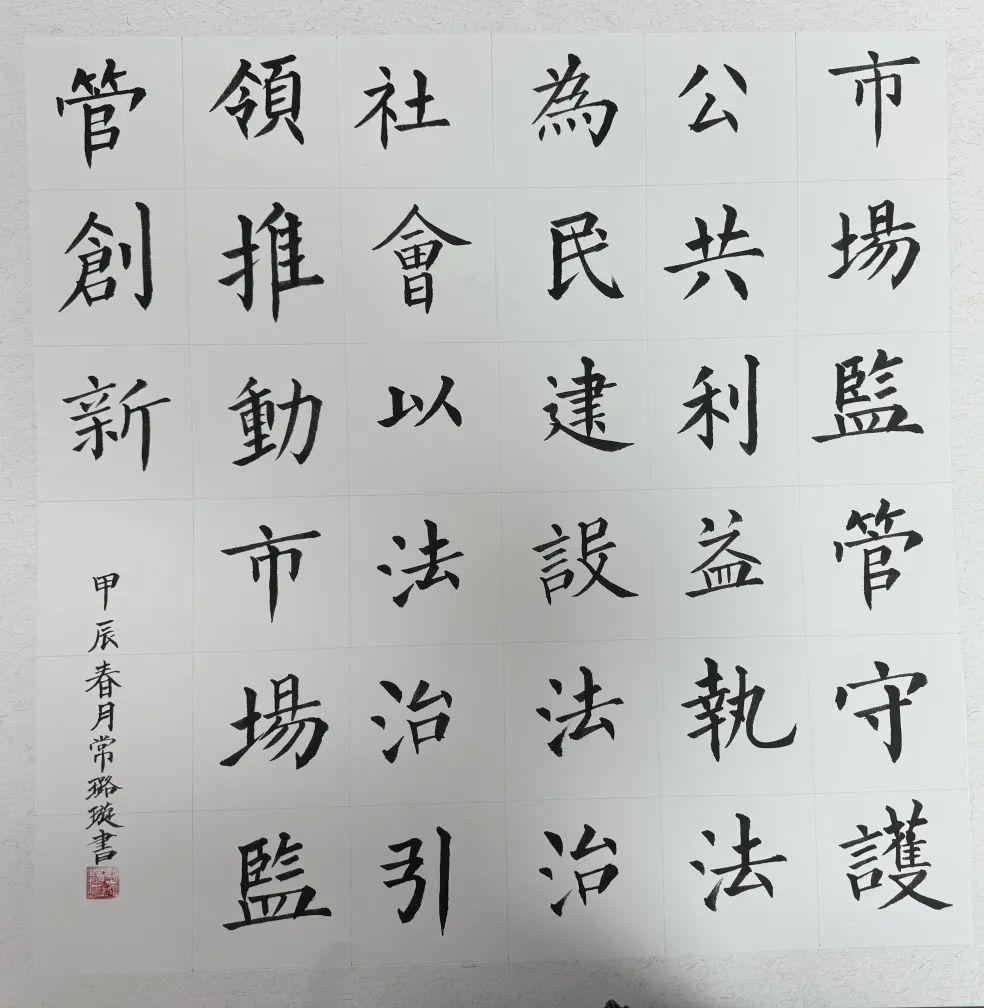 市場監管守護
公共利益執法
為民建設法治
社會以法治引
領推動市場監
管創新
甲辰春月常璐璇書